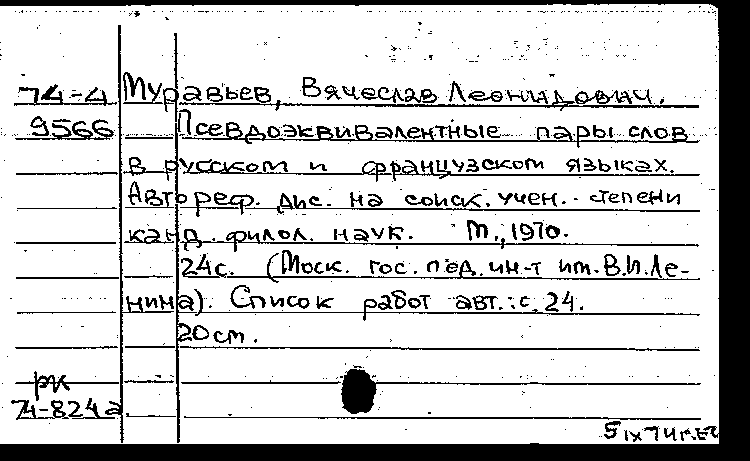 74-4 Муравьев, Вячеслав Леонидович.
9566 Псевдоэквивалентные пары слов
в русском и французском языках.
Автореф. дис. на соиск. учен. степени
канд. филол. наук. М., 1970.
24с. (Моск. гос. пед. ин-т им. В.И.Ле-
нина). Список работ авт.: с. 24.
20см.
рк
74-824а
5 IX 74г.